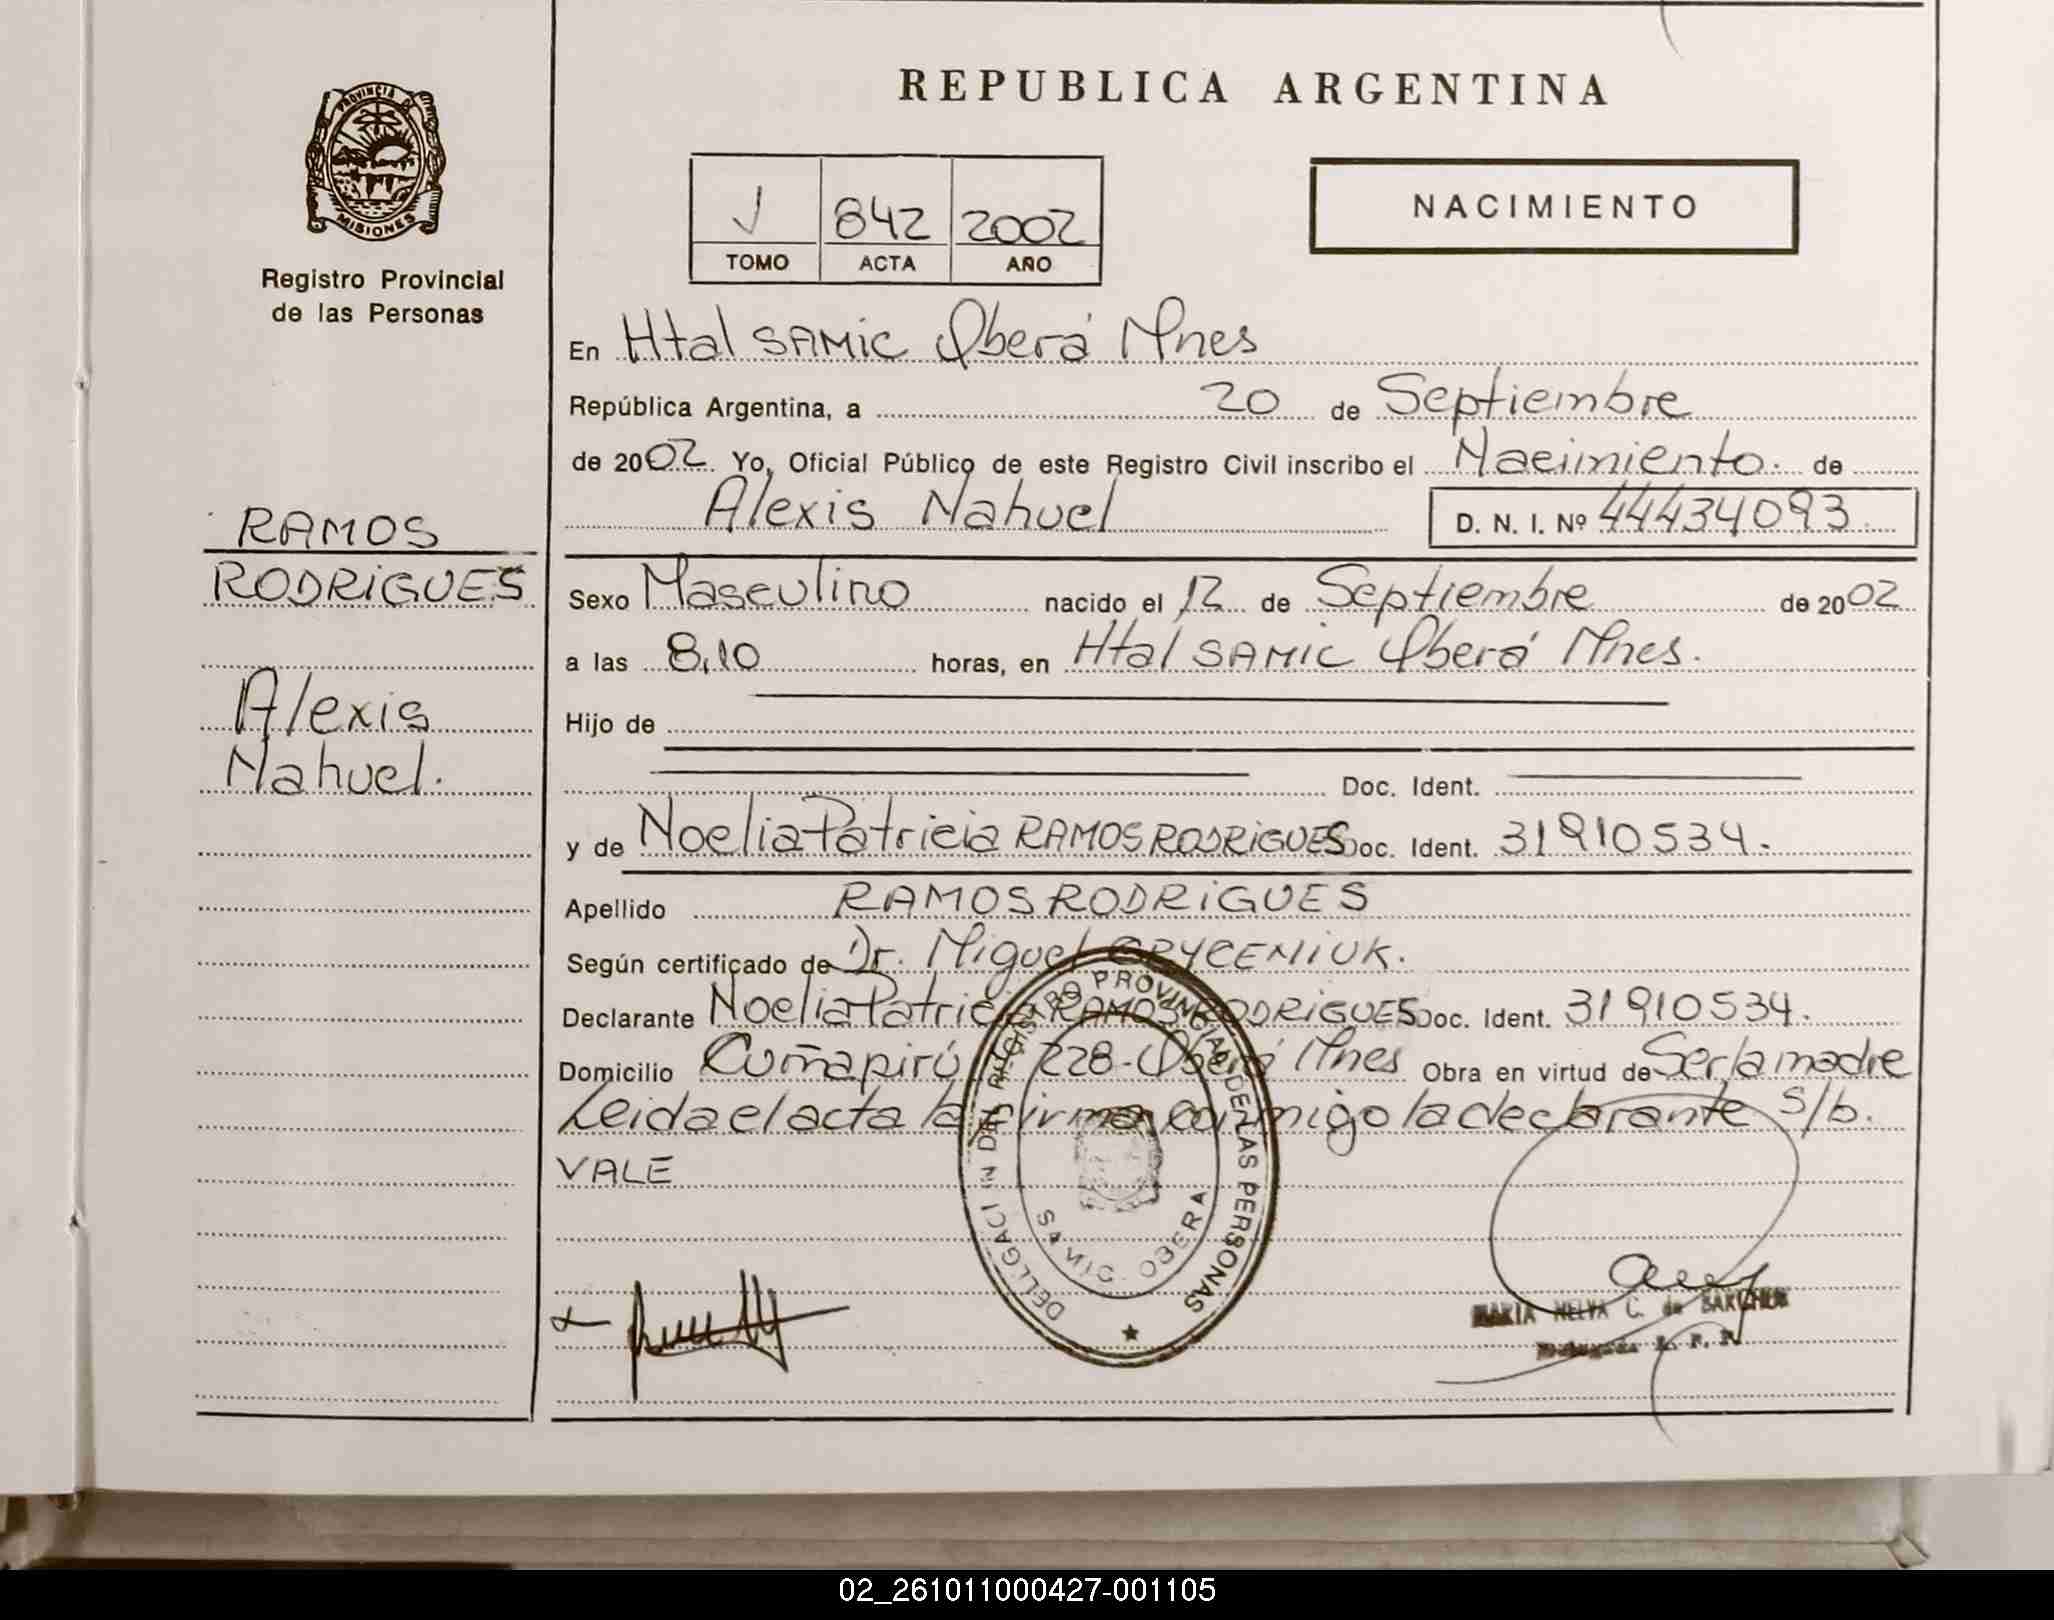 REPUBLICA ARGENTINA
PROVINCIA DE MISIONES
Registro Provincial
de las Personas
NACIMIENTO
842 2002
TOMO ACTA AÑO
En Htal SAMIC Oberá Mnes
República Argentina, a 20 de Septiembre
de 2002 Yo, Oficial Público de este Registro Civil inscribo el Nacimiento. de
Alexis Nahuel D. N. I. Nº 44434093.
RAMOS
RODRIGUES
Alexis
Nahuel.
Sexo Masculino nacido el 12 de Septiembre de 2002
a las 8,10 horas, en Htal SAMIC Oberá Mnes.
Hijo de
Doc. Ident.
y de Noelia Patricia RAMOS RODRIGUES Doc. Ident. 31910534.
Apellido RAMOS RODRIGUES
Según certificado de Dr. Miguel
Declarante Noelia Patricia RAMOS RODRIGUES Doc. Ident. 31910534.
Domicilio Cuñapirú 228-Oberá Mnes Obra en virtud de Ser la madre
Leida el acta la firma conmigo la declarante S/b.
VALE
REGISTRO PROVINCIAL DE LAS PERSONAS
SAMIC. OBERA
MARIA NELVA C. de
02_261011000427-001105